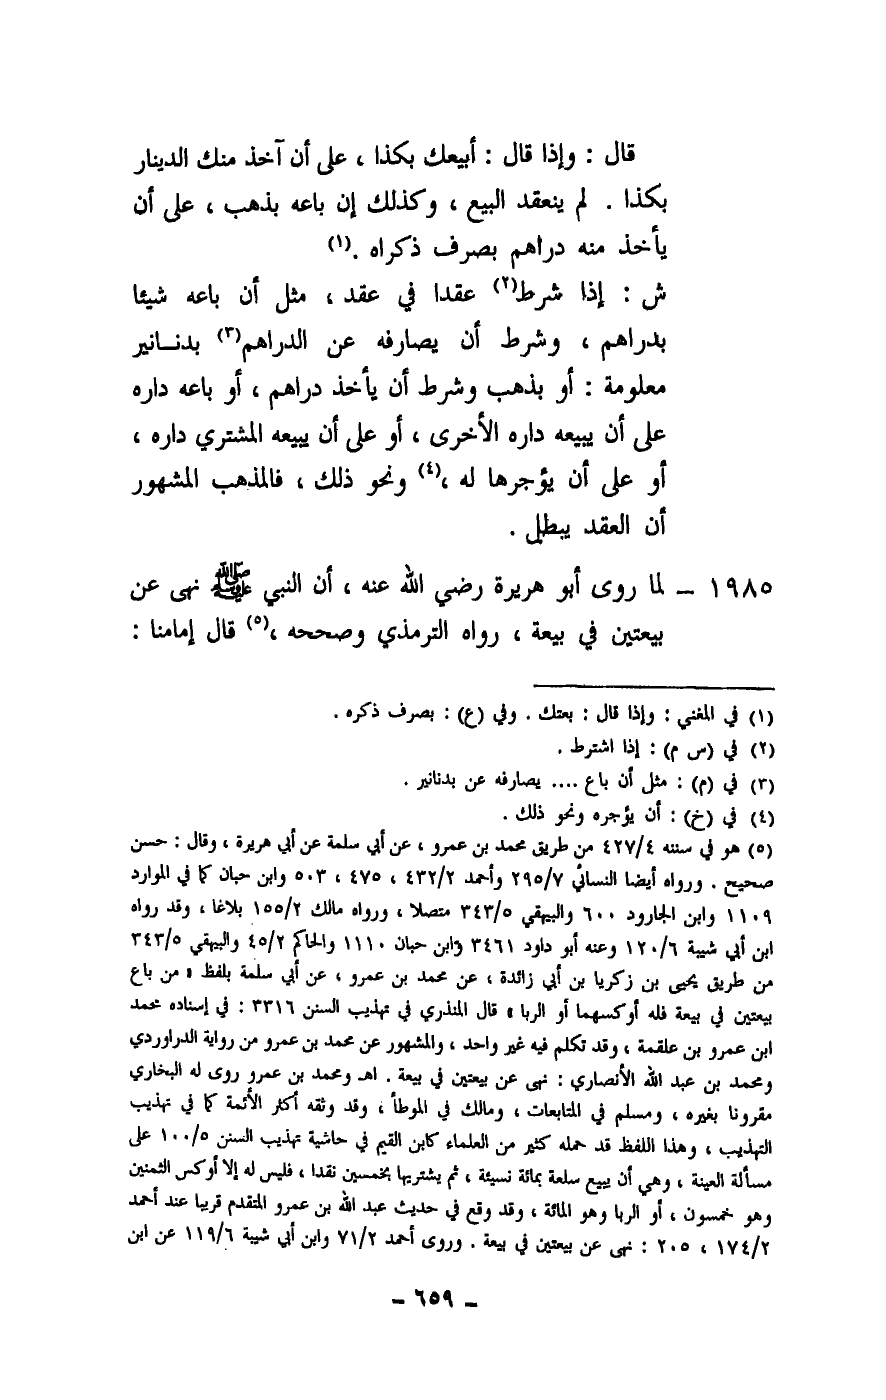 قال : وإذا قال : أبيعك بكذا ، على أن آخذ منك الدينار
بكذا . لم ينعقد البيع ، وكذلك إن باعه بذهب ، على أن
يأخذ منه دراهم بصرف ذكراه .(١)
ش : إذا شرط(٢) عقدا في عقد ، مثل أن باعه شيئا
بدراهم ، وشرط أن يصارفه عن الدراهم(٣) بدنـانير
معلومة : أو بذهب وشرط أن يأخذ دراهم ، أو باعه داره
على أن يبيعه داره الأخرى ، أو على أن يبيعه المشتري داره ،
أو على أن يؤجرها له ،(٤) ونحو ذلك ، فالمذهب المشهور
أن العقد يبطل .
١٩٨٥ – لما روى أبو هريرة رضي الله عنه ، أن النبي ﷺ نهى عن
بيعتين في بيعة ، رواه الترمذي وصححه ،(٥) قال إمامنا :
(١) في المغني : وإذا قال : بعتك . وفي (ع) : بصرف ذكره .
(٢) في (س م) : إذا اشترط .
(٣) في (م) : مثل أن باع .... يصارفه عن بدنانير .
(٤) في (خ) : أن يؤجره ونحو ذلك .
(٥) هو في سننه ٤٢٧/٤ من طريق محمد بن عمرو ، عن أبي سلمة عن أبي هريرة ، وقال : حسن
صحيح . ورواه أيضا النسائي ٢٩٥/٧ وأحمد ٤٣٢/٢ ، ٤٧٥ ، ٥٠٣ وابن حبان كما في الموارد
١١٠٩ وابن الجارود ٦٠٠ والبيهقي ٣٤٣/٥ متصلا ، ورواه مالك ١٥٥/٢ بلاغا ، وقد رواه
ابن أبي شيبة ١٢٠/٦ وعنه أبو داود ٣٤٦١ وابن حبان ١١١٠ والحاكم ٤٥/٢ والبيهقي ٣٤٣/٥
من طريق يحيى بن زكريا بن أبي زائدة ، عن محمد بن عمرو ، عن أبي سلمة بلفظ « من باع
بيعتين في بيعة فله أوكسهما أو الربا » قال المنذري في تهذيب السنن ٣٣١٦ : في إسناده محمد
ابن عمرو بن علقمة ، وقد تكلم فيه غير واحد ، والمشهور عن محمد بن عمرو من رواية الدراوردي
ومحمد بن عبد الله الأنصاري : نهى عن بيعتين في بيعة . اهـ ومحمد بن عمرو روى له البخاري
مقرونا بغيره ، ومسلم في المتابعات ، ومالك في الموطأ ، وقد وثقه أكثر الأئمة كما في تهذيب
التهذيب ، وهذا اللفظ قد حمله كثير من العلماء كابن القيم في حاشية تهذيب السنن ١٠٠/٥ على
مسألة العينة ، وهي أن يبيع سلعة بمائة نسيئة ، ثم يشتريها بخمسين نقدا ، فليس له إلا أوكس الثمنين
وهو خمسون ، أو الربا وهو المائة ، وقد وقع في حديث عبد الله بن عمرو المتقدم قريبا عند أحمد
١٧٤/٢ ، ٢٠٥ : نهى عن بيعتين في بيعة . وروى أحمد ٧١/٢ وابن أبي شيبة ١١٩/٦ عن ابن
– ٦٥٩ –